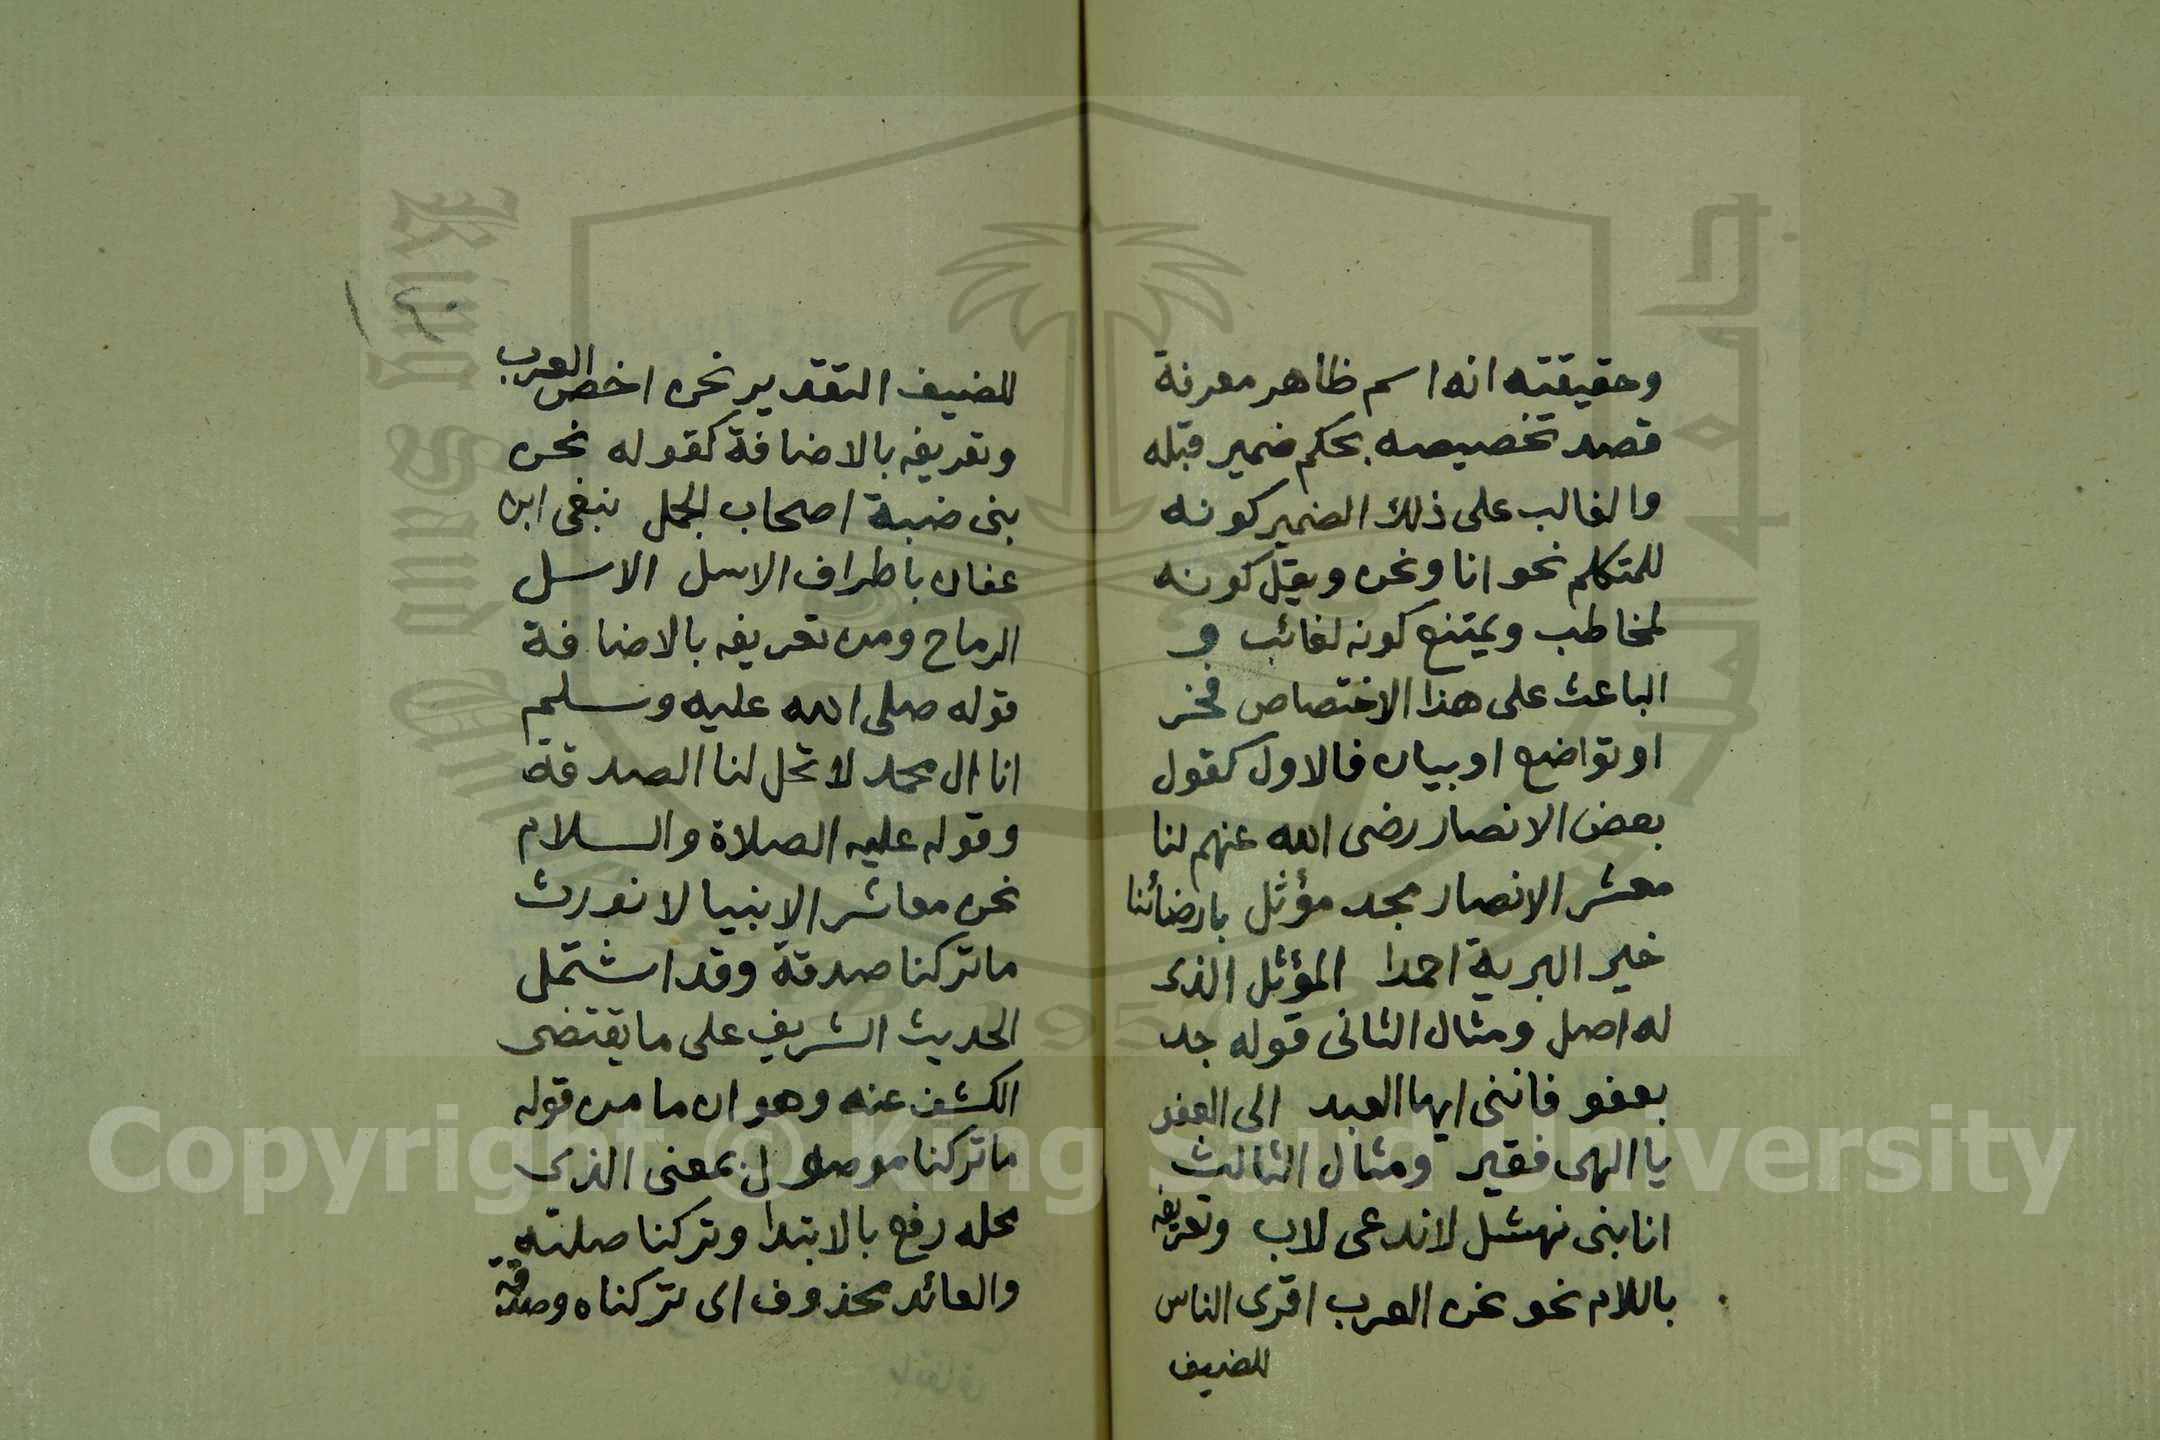 وحقيقته انه اسم ظاهر معرفة
قصد تخصيصه بحكم ضمير قبله
والغالب على ذلك الضمير كونه
للمتكلم نحو انا ونحن ويقل كونه
لمخاطب ويمتنع كونه لغائب و
الباعث على هذا الاختصاص فخر
او تواضع او بيان فالاول كقول
بعض الانصار رضى الله عنهم لنا
معشر الانصار مجد مؤثل بارضائنا
خير البرية احمدا المؤثل الذى
له اصل ومثال الثانى قوله جد
بعفو فاننى ايها العبد الى العفو
يا الهى فقير ومثال الثالث
انا بنى نهشل لا ندعى لاب وتعريفه
باللام نحو نحن العرب اقرى الناس
للضيف
١٢٠
للضيف التقدير نحن اخص العرب
وتعريفه بالاضافة كقوله نحن
بنى ضبة اصحاب الجمل ننعى ابن
عفان باطراف الاسل الاسل
الرماح ومن تعريفه بالاضافة
قوله صلى الله عليه وسلم
انا ال محمد لا تحل لنا الصدقة
وقوله عليه الصلاة والسلام
نحن معاشر الانبيا لا نورث
ما تركنا صدقة وقد اشتمل
الحديث الشريف على ما يقتضى
الكشف عنه وهو ان ما من قوله
ما تركنا موصول بمعنى الذى
محله رفع بالابتدا وتركنا صلته
والعائد محذوف اى تركناه وصدقة
جامعة الملك سعود
King Saud University
1957
Copyright © King Saud University